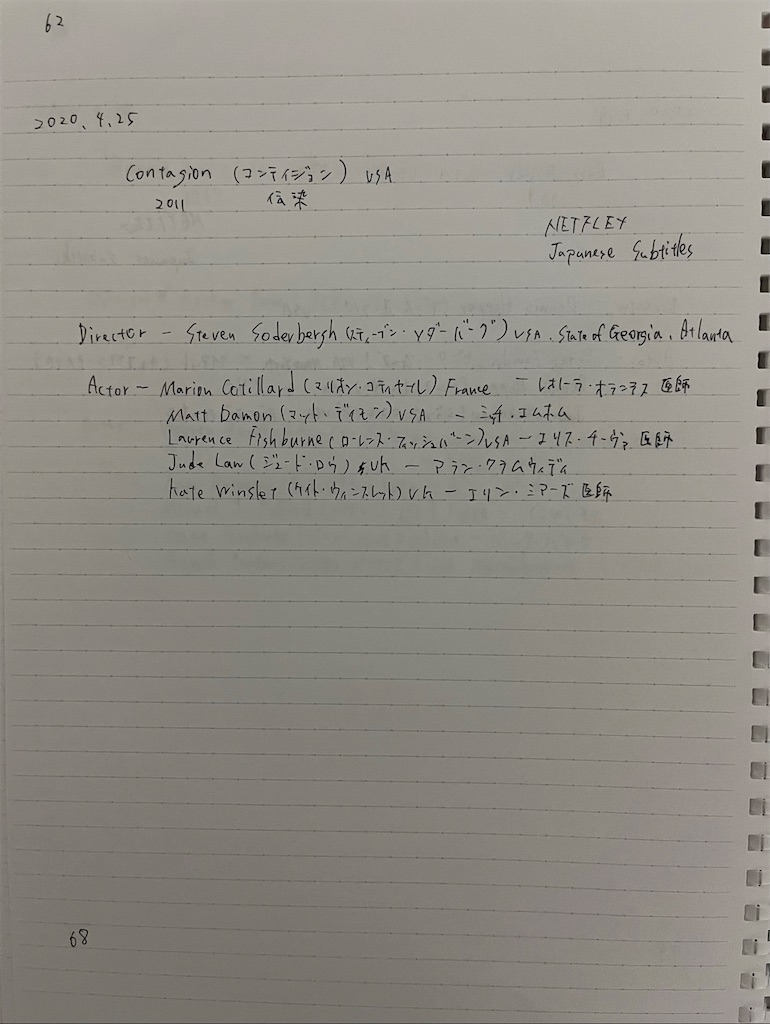 62
2020.4.25
Contagion (コンテイジョン) USA
2011 伝染
NETFLEX
Japanese Subtitles
Director - Steven Soderbergh (スティーブン・ソダーバーグ) USA. State of Georgia. Atlanta
Actor - Marion Cotillard (マリオン・コティヤール) France - レオノーラ・オランテス 医師
Matt Damon (マット・デイモン) USA - ミッチ・エムホフ
Laurence Fishburne (ローレンス・フィッシュバーン) USA - エリス・チーヴァ 医師
Jude Law (ジュード・ロウ) UK - アラン・クラムウィディ
Kate Winslet (ケイト・ウィンスレット) UK - エリン・ミアーズ 医師
68